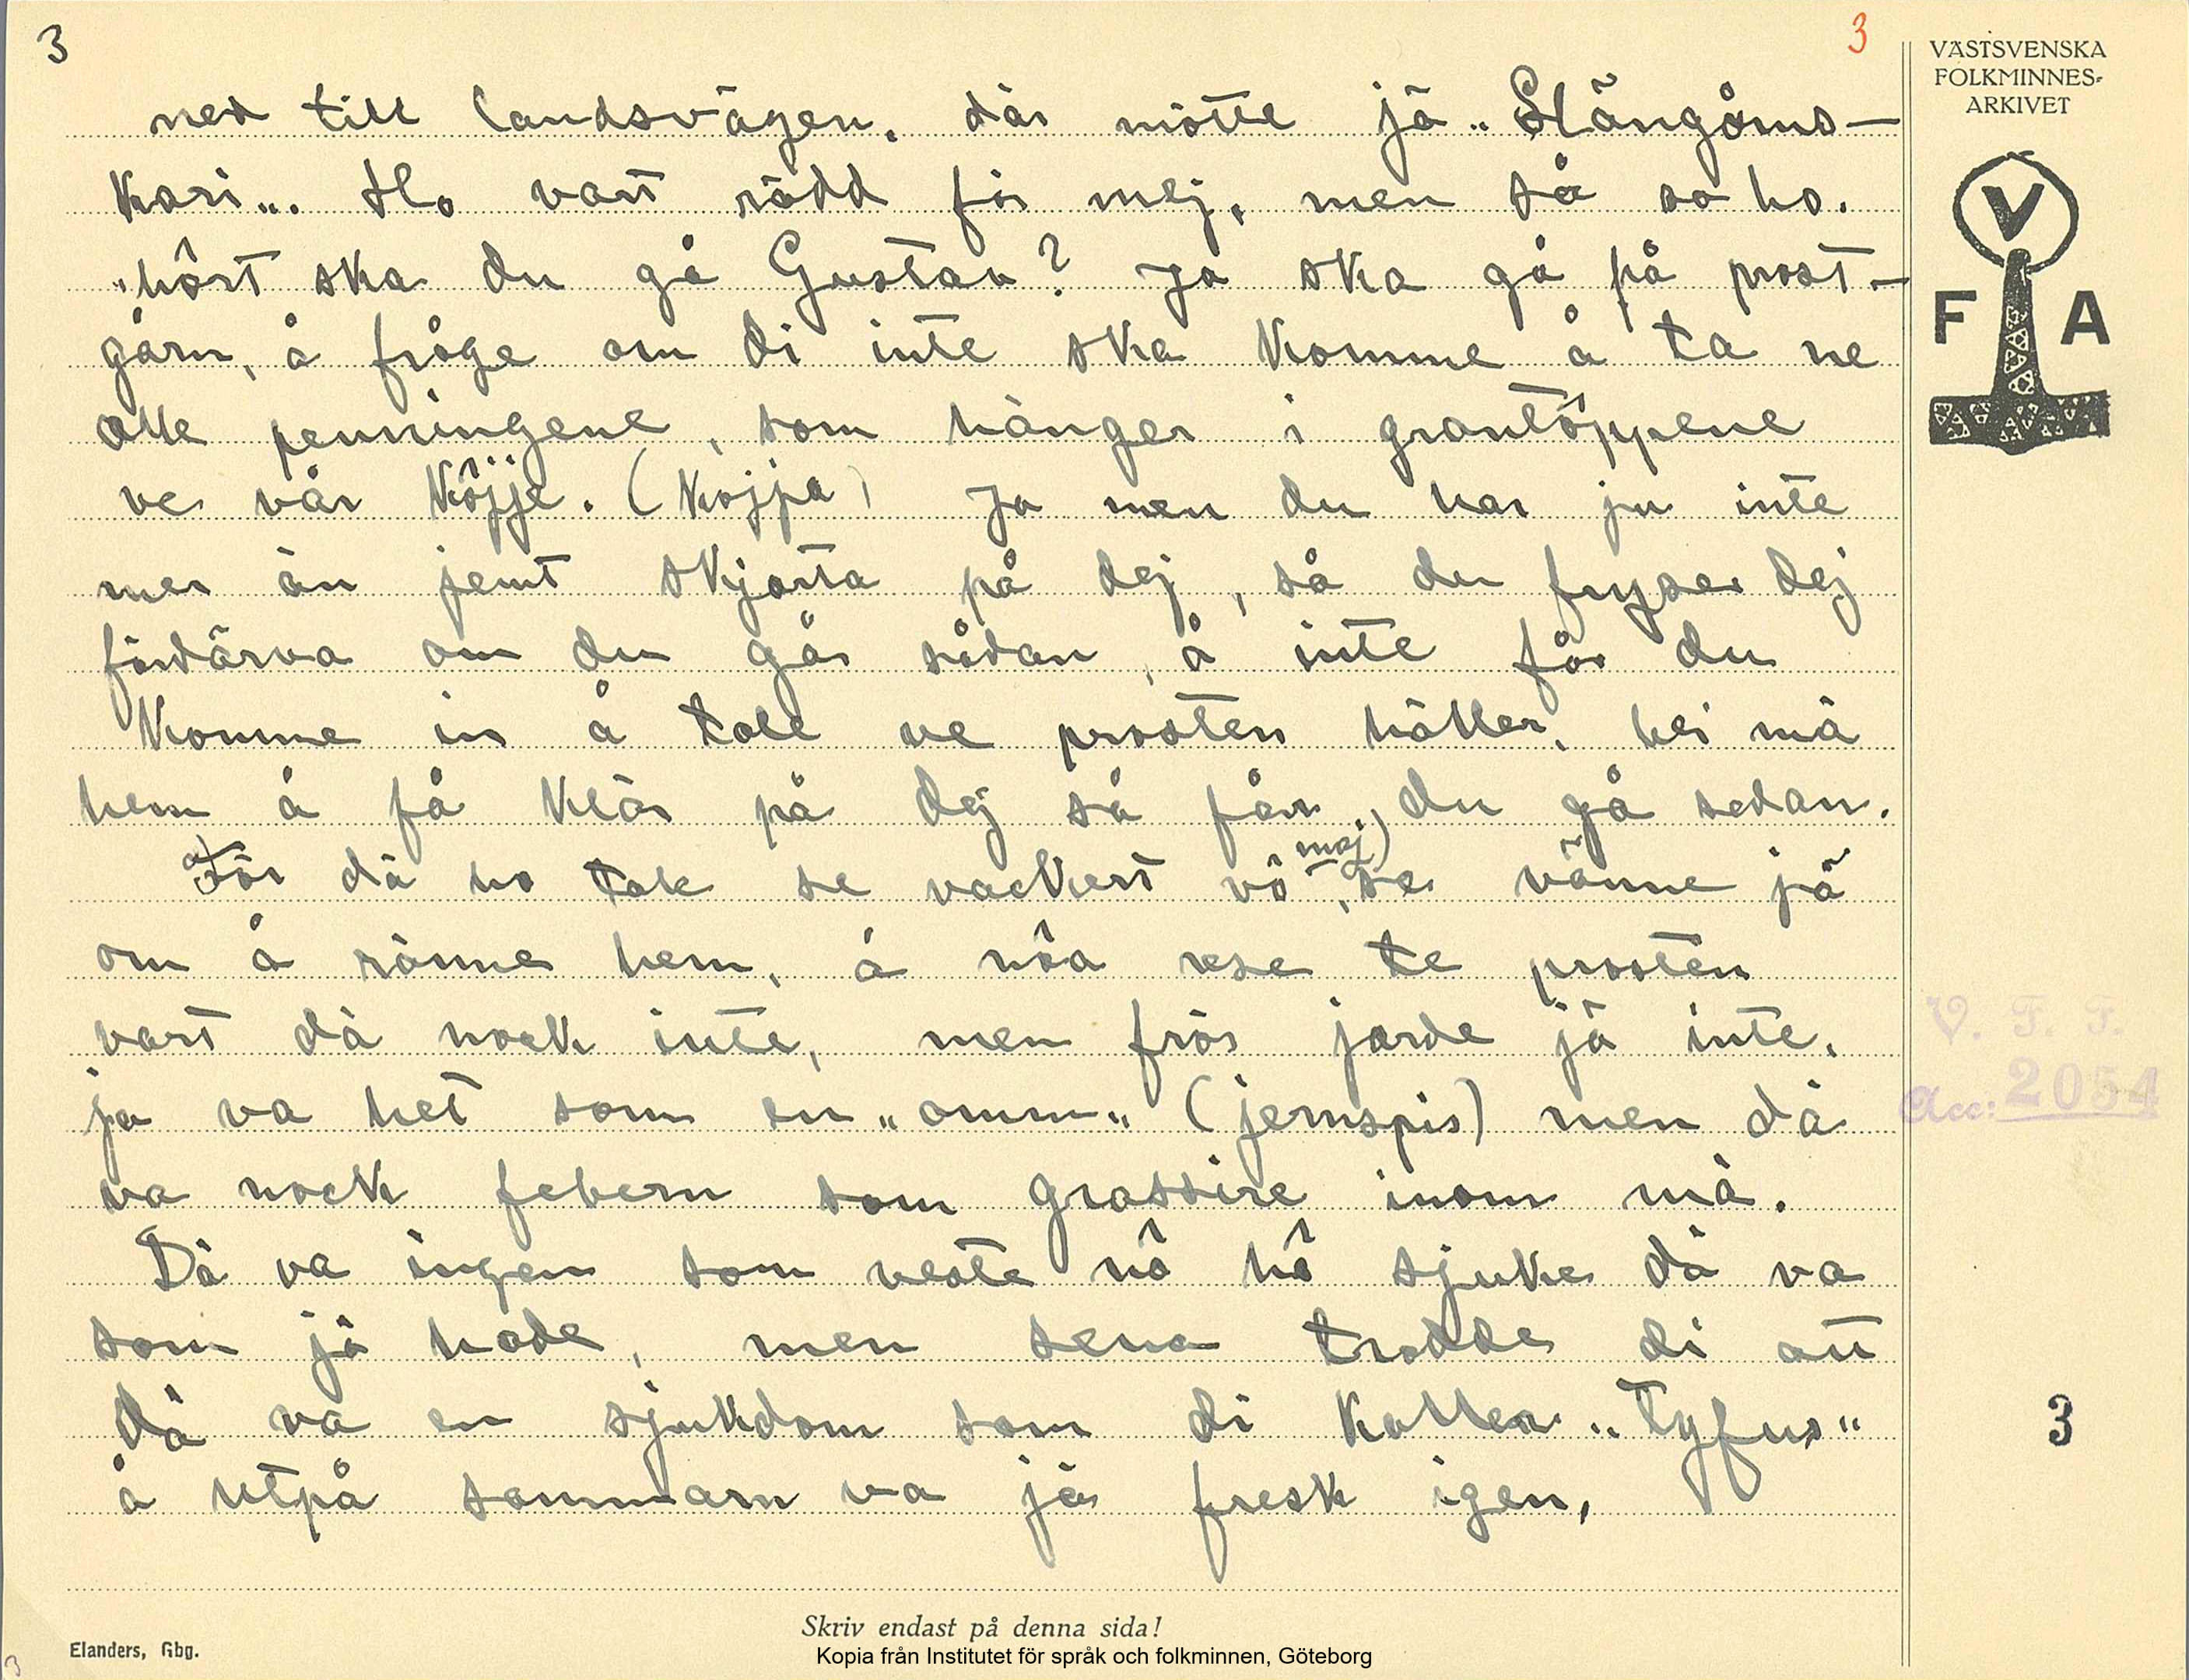 3
3
VÄSTSVENSKA
FOLKMINNES-
ARKIVET
V
F A
ned till landsvägen. där mötte jä „Slängåms-
kari„. Ho vart rädd för mej, men så sa ho.
„hôrt ska du gå Gustav? Ja ska gå på prost-
gårn, å fråge om di inte ska komme å ta ne
alle penningene, som hänger i grantôppene
ve vår Kôjje. (Kojja) Ja men du har ju inte
mer än jemt skjorta på dej, så du fryser dej
fördärva om du går sådan, å inte får du
komme in å tale ve prosten häller, mä
hem å få klär på dej så får du gå sedan.
För dä ho tale se vackert vô maj) se vänne jä
om å ränne hem, å nôa rese te prosten
vart dä nock inte, men frös jorde jä inte.
ja va het som en „omm„ (jernspis) men dä
va nock febern som grassire inom mä.
Dä va ingen som veste nô hô sjuke dä va
som jä hade, men sena trodde di att
dä va en sjukdom som di kaller „Tyfus„
å utpå sommarn va jä fresk igen,
V. F. F.
Acc: 2054
3
Skriv endast på denna sida!
Elanders, Gbg.
Kopia från Institutet för språk och folkminnen, Göteborg
3